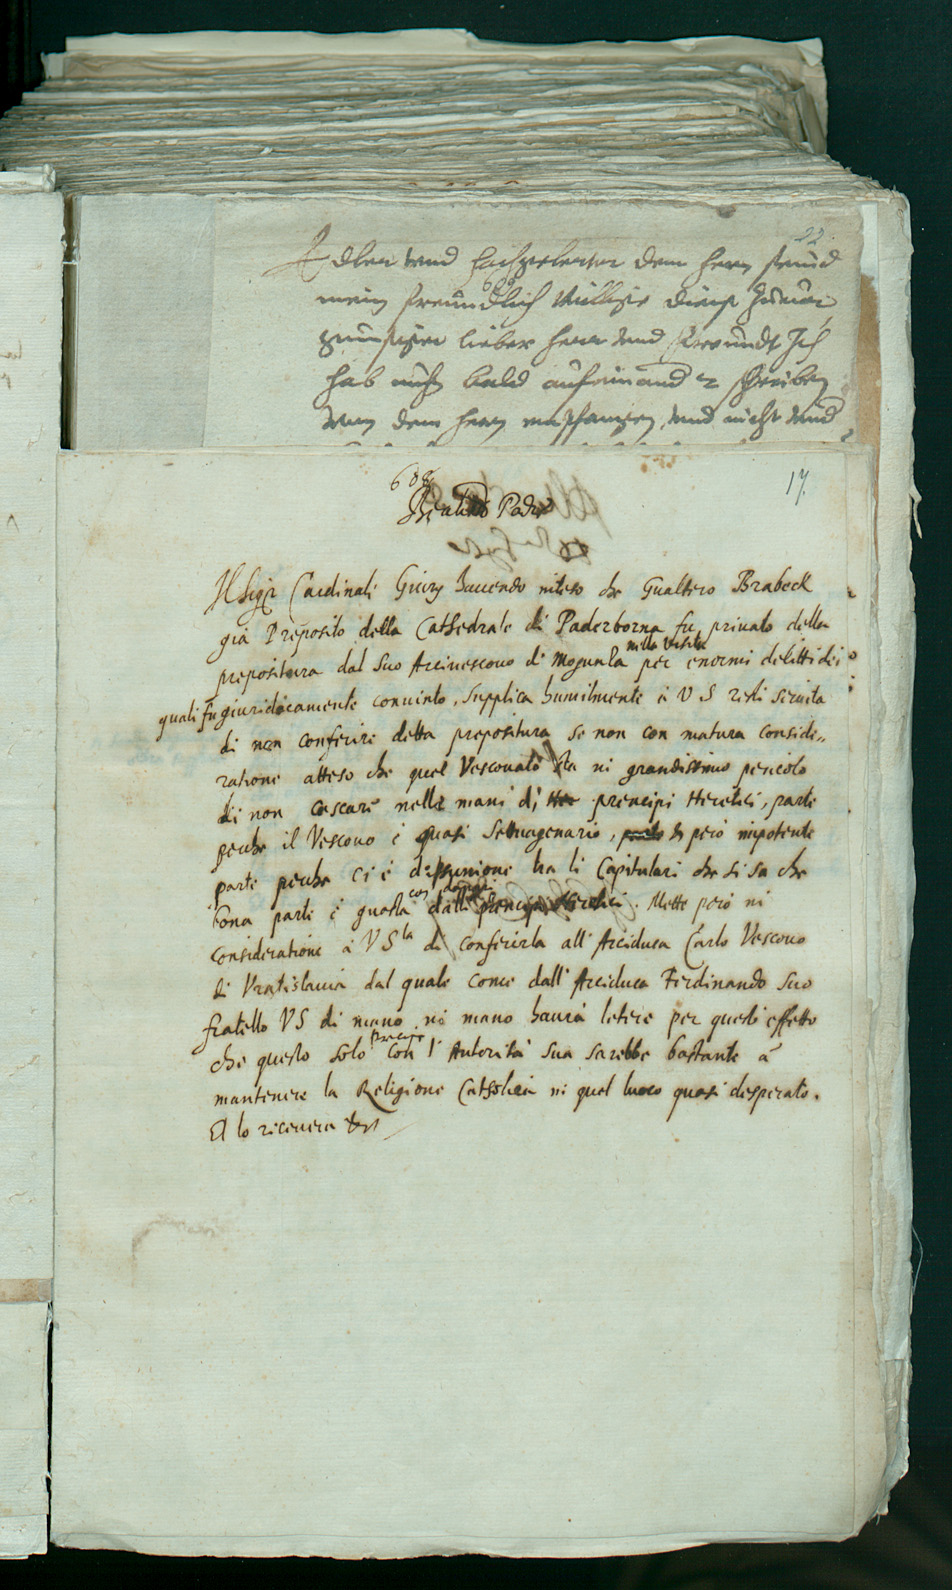 22.
Edler und hochgelerter dem hern seind
mein freundlich willige dienst zuvor
gunstiger lieber herr und freundt Ich
hab nicht bald schreiben
von dem hern empfangen, und nicht
17.
608
Beatmo Padre
Il Sigr Cardinali havendo inteso che Gualtero Brabeck
già Preposito della Cathedrale di Paderborna fu privato della
prepositura dal suo Arcivescovo di Mogunta nella Visita per enormi delitti dei
quali fu giuridicamente convinto, supplica humilmente à V S resti servita
di non conferire detta prepositura se non con matura conside„
ratione atteso che quel Vescovato sta in grandissimo pericolo
di non cascare nelle mani di principi Heretici, parte
perche il Vescovo è quasi Settuagenario, però impotente
parte perche ci è disunione tra li Capitulari che si sa che
bona parte è guasta con danari dalli principi Heretici. Mette però in
consideratione à V Sta di conferirla all' Arciduca Carlo Vescovo
di Vratislavia dal quale come dall' Arciduca Ferdinando suo
fratello V S di mano in mano haurà letere per questo effetto
che questo solo Prencipe con l' Autorità sua sarebbe bastante à
mantenere la Religione Catholica in quel luoco quasi desperato.
Et lo ricevera